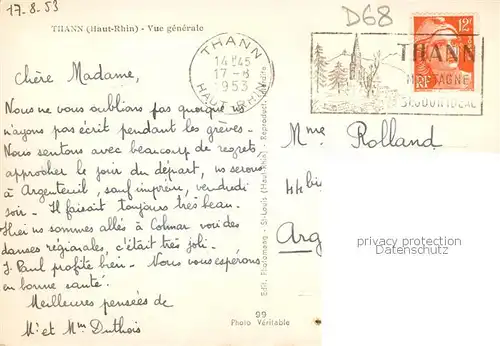 17-8.53
D68
THANN (Haut-Rhin) - Vue générale
THANN
14H45
17-8
1953
HAUT-RHIN
12F
RF
THANN
MONTAGNE
SEJOUR IDEAL
Chère Madame,
Nous ne vous oublions pas quoique nous
n'ayons pas écrit pendant les grèves.-
Nous sentons avec beaucoup de regrets
approcher le jour du départ, nous serons
à Argenteuil, sauf imprévu, vendredi
soir - Il faisait toujours très beau.
Hier nous sommes allés à Colmar voir des
danses régionales, c'était très joli.
J. Paul profite bien - Nous vous espérons
en bonne santé.
Meilleures pensées de
Mr et Mme Duthois
Edit. - St-Louis (Haut-Rhin) - Reproduction interdite
99
Photo Véritable
Mme Rolland
44 bis
Arg
privacy protection
Datenschutz